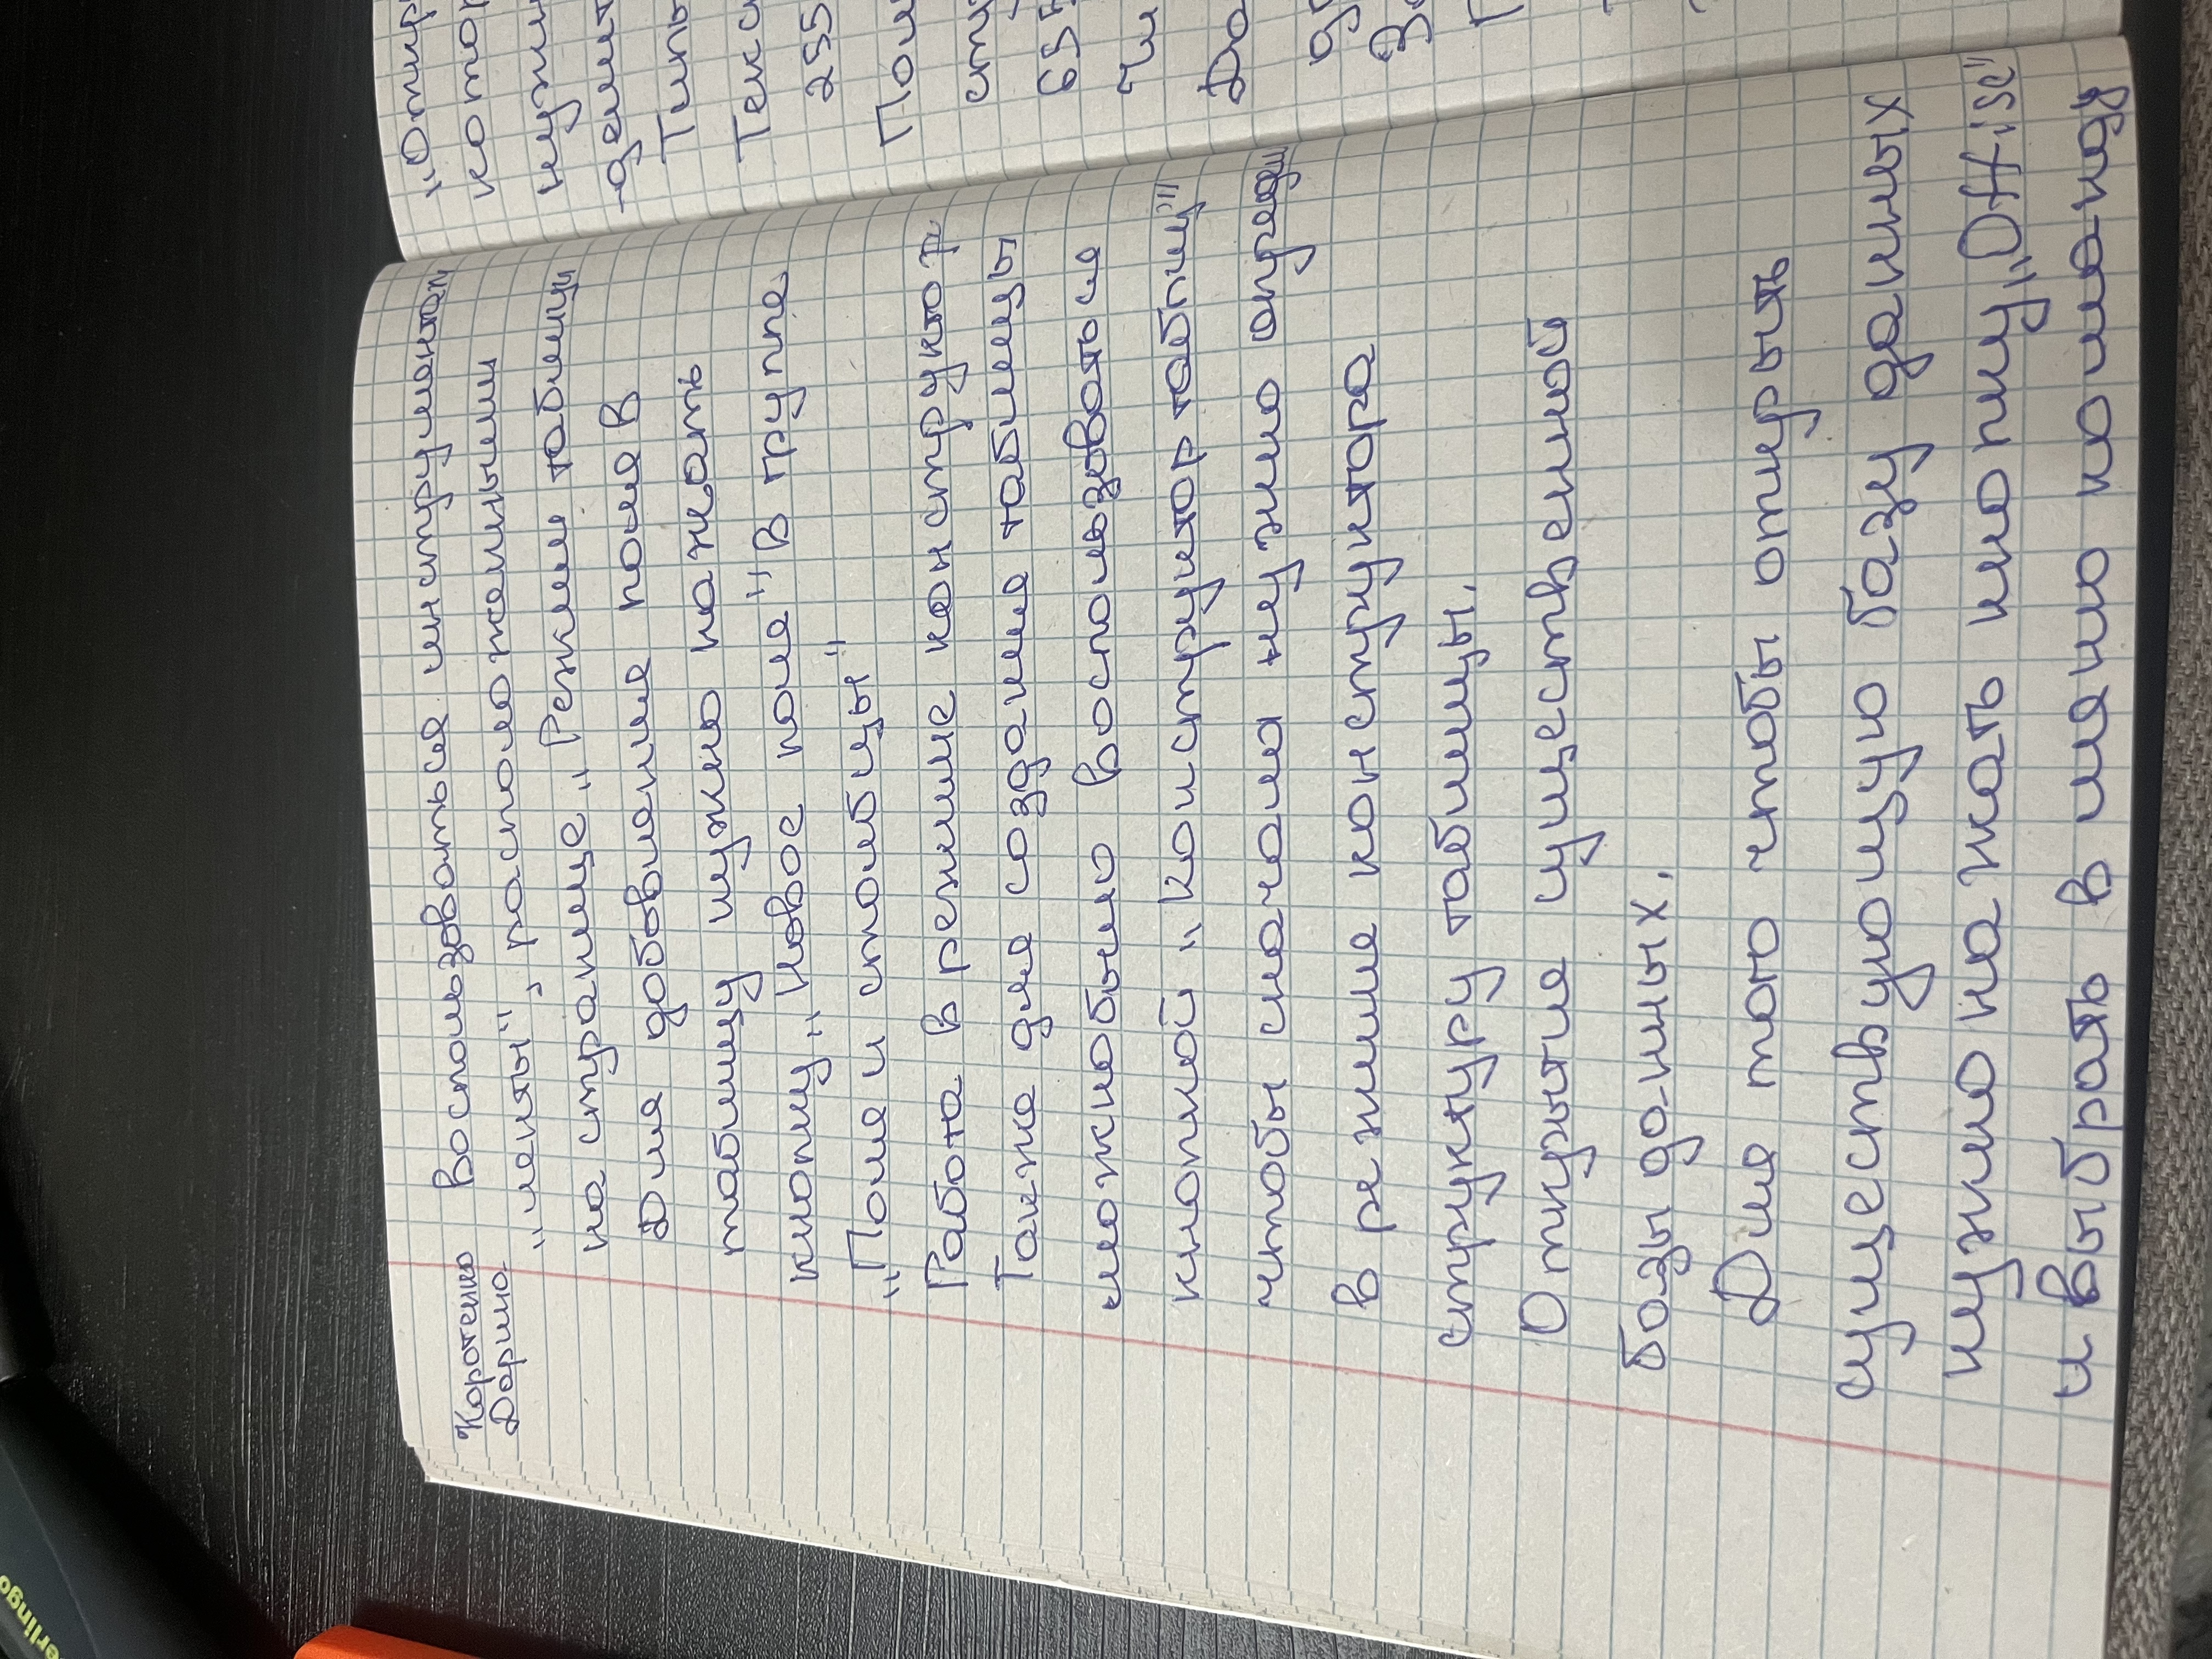 Коротенко
Дарина
Воспользоваться инструментам
"ленты", расположенными
на странице "Режим таблицы
Для добавления поля в
таблицу нужно нажать
кнопку "Новое поле" в группе
"Поля и столбцы"
Работа в режиме конструктор
Также для создания таблицы
можно было воспользоваться
кнопкой "Конструктор таблиц"
чтобы сначала нужно опреди
в режиме конструктора
структуру таблицы.
Открытие существенной
базы данных.
Для того чтобы открыть
существующую базу данных
нужно нажать кнопку "Offise"
и выбрать в меню команду
"Откр
котор
нужн
Типы
Текс
255
Пол
65
Да
erlingo